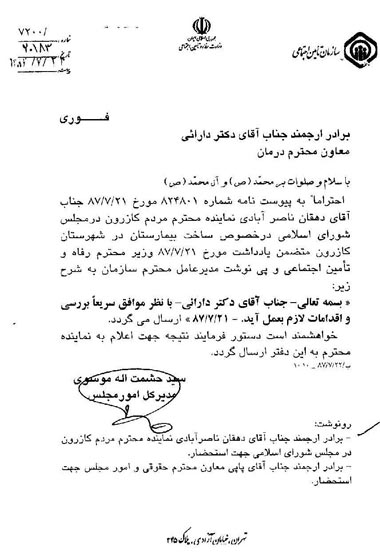 سازمان تأمین اجتماعی
جمهوری اسلامی ایران
وزارت رفاه و تأمین اجتماعی
شماره
۷۲۰۰/
۲۰۱۸۳
تاریخ
پیوست
فــوری
برادر ارجمند جناب آقای دکتر دارائی
معاون محترم درمان
با سلام و صلوات بر محمّد (ص) و آل محمّد (ص)
احتراماً به پیوست نامه شماره ۸۲۴۸۰۱ مورخ ۸۷/۷/۲۱ جناب
آقای دهقان ناصر آبادی نماینده محترم مردم کازرون درمجلس
شورای اسلامی درخصوص ساخت بیمارستان در شهرستان
کازرون متضمن یادداشت مورخ ۸۷/۷/۲۱ وزیر محترم رفاه و
تأمین اجتماعی و پی نوشت مدیرعامل محترم سازمان به شرح
زیر:
« بسمه تعالی- جناب آقای دکتر دارائی- با نظر موافق سریعاً بررسی
و اقدامات لازم بعمل آید. - ۸۷/۷/۲۱ » ارسال می گردد.
خواهشمند است دستور فرمایند نتیجه جهت اعلام به نماینده
محترم به این دفتر ارسال گردد.
ب/۸۷/۷/۲۲_ ۱۰۱۰
سید حشمت اله موسوی
مدیرکل امورمجلس
رونوشت:
- برادر ارجمند جناب آقای دهقان ناصرآبادی نماینده محترم مردم کازرون
در مجلس شورای اسلامی جهت استحضار.
- برادر ارجمند جناب آقای پاپی معاون محترم حقوقی و امور مجلس جهت
استحضار.
تهران، خیابان آزادی، پلاک ۳۴۵